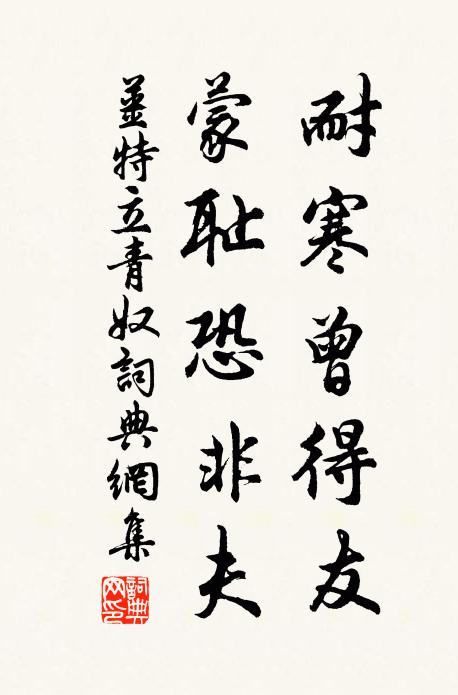 耐寒曾得友
蒙耻恐非夫
姜特立青奴詞典網集
詞典網印